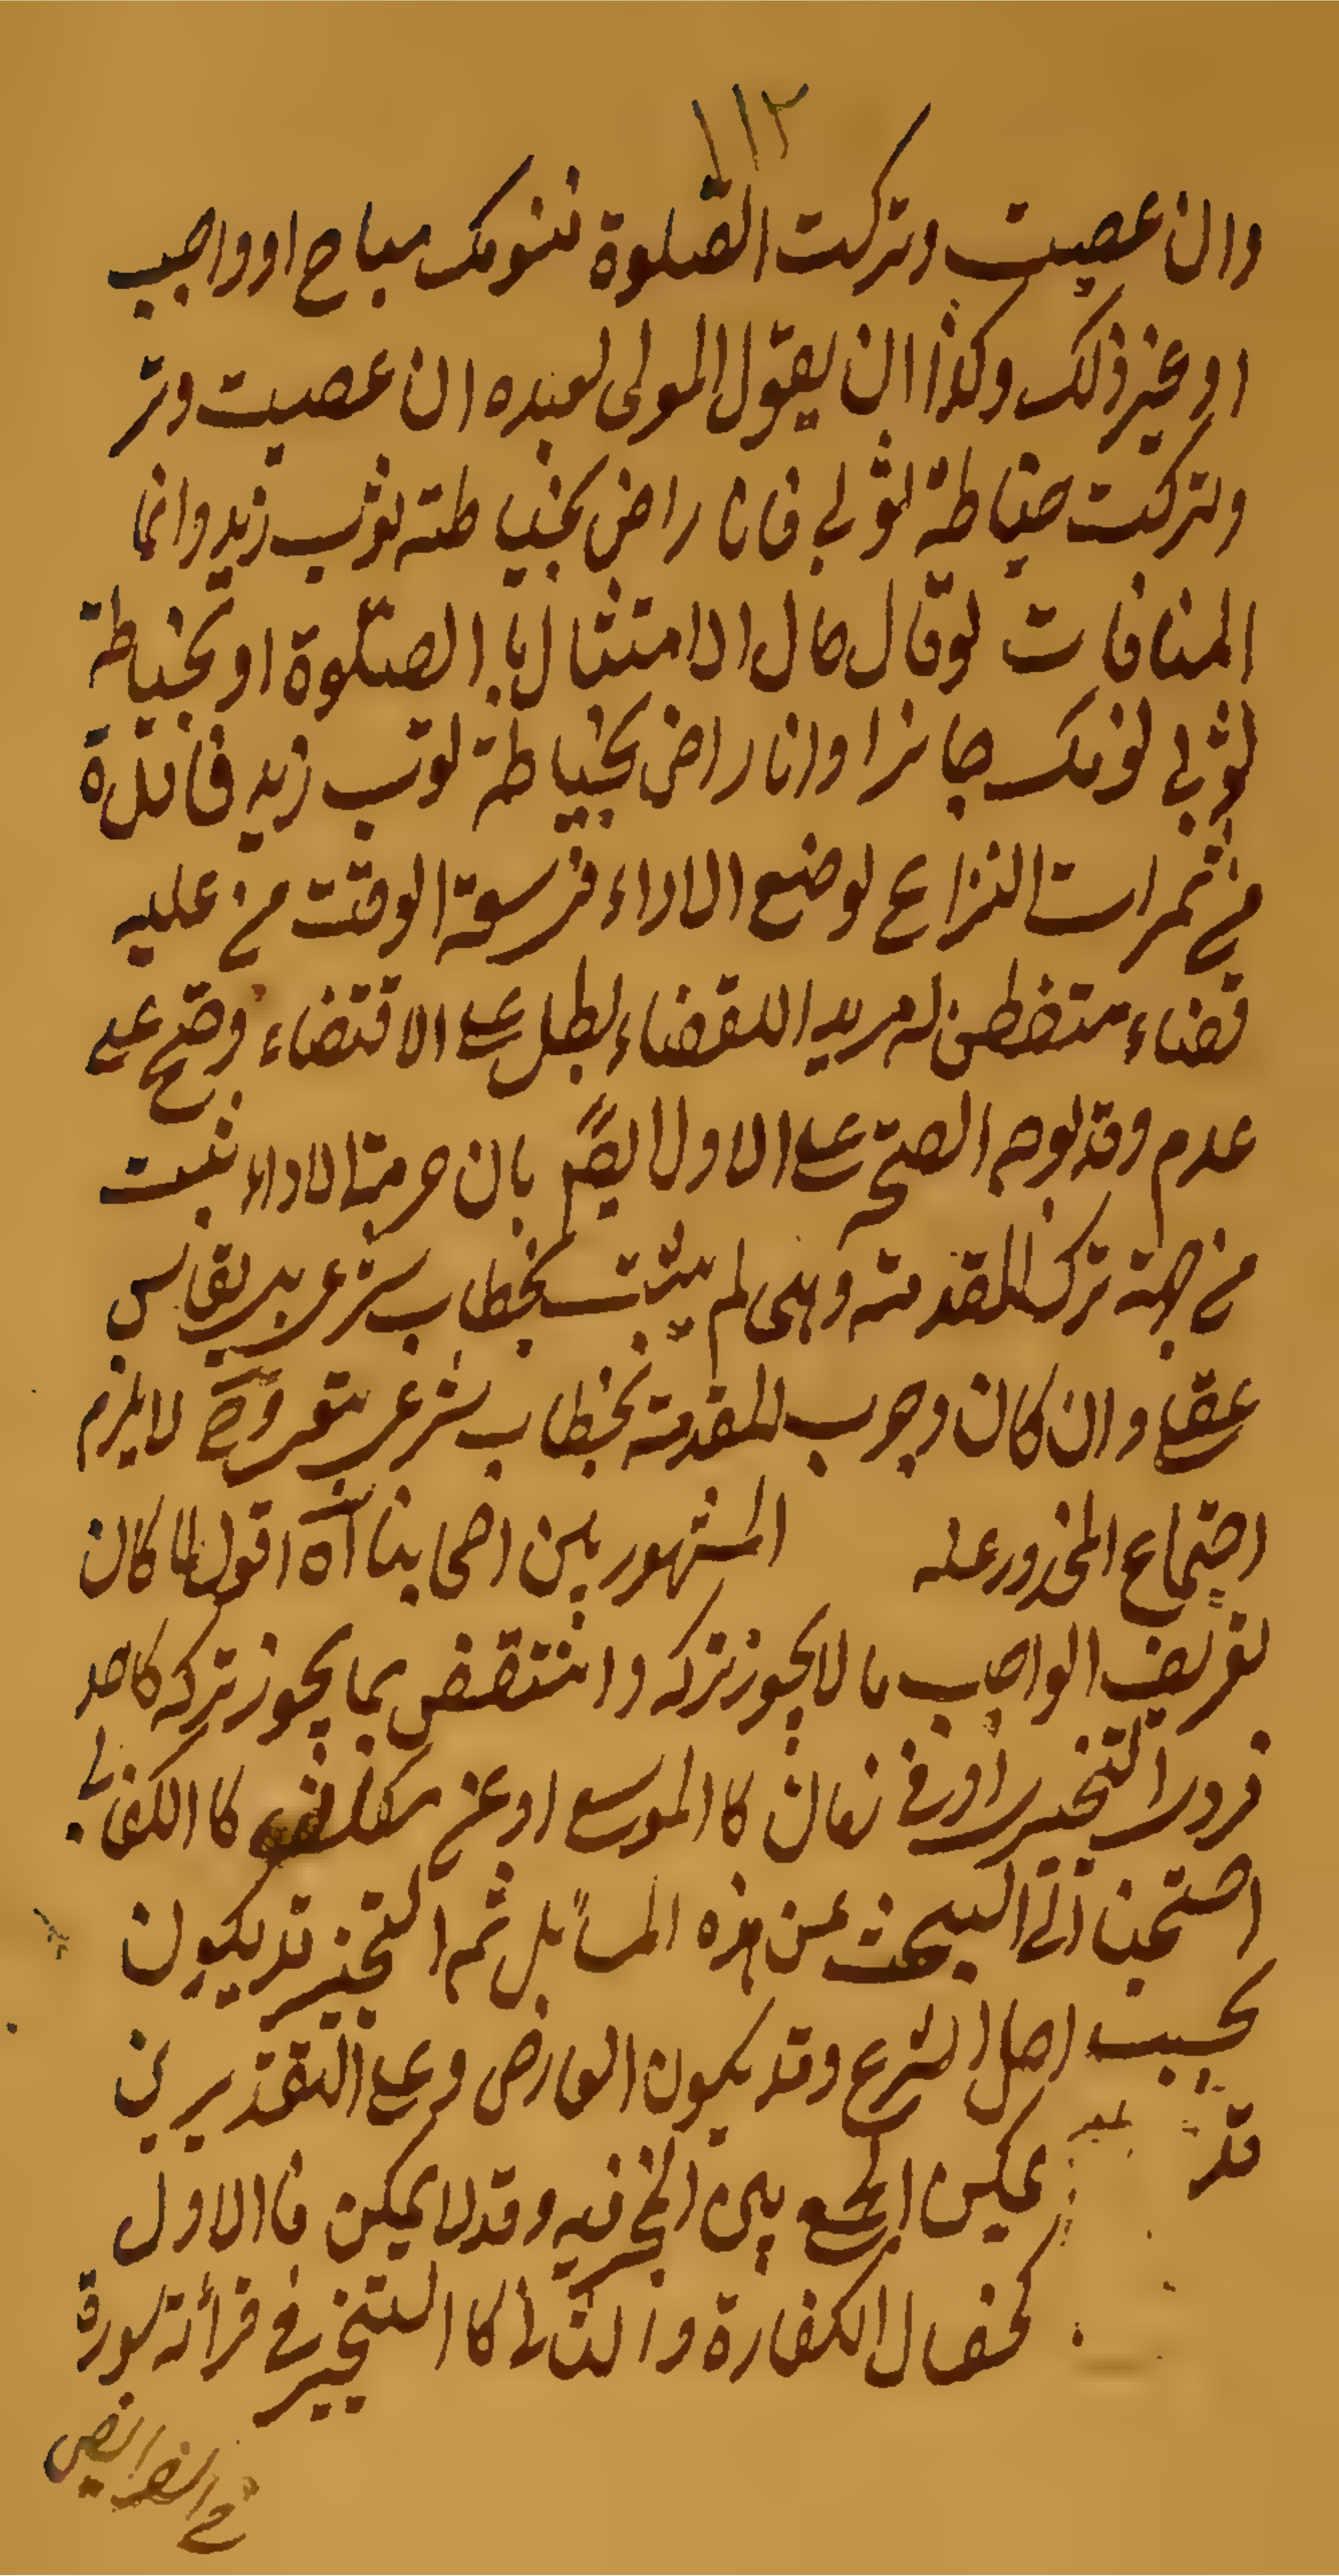 ١١٢
وان عصيت وتركت الصّلوة فنومك مباح او واجب
او غير ذلك وكذا ان يقول المولى لعبده ان عصيت وتر
وتركت خياطة ثوبي فانا راض بخياطته ثوب زيد وانما
المنافات لو قال حال الامتثال با الصّلوة او بخياطة
ثوبي نومك جائزا وانا راض بخياطة ثوب زيد فائدة
من ثمرات النزاع لو ضيع الاداء في سعة الوقت من عليه
قضاء متفطن له مريد اللقضاء بطل على الاقتضاء وصح على
عدم وقد يوهم الصحّة على الاول ايضًا بان حرمة الاداء ثبت
من جهة ترك المقدمة وهى لم يثبت بخطاب شرعى بل بقياس
عقلى وان كان وجوب المقدمة بخطاب شرعى لا يلزم
اجتماع المحذور عله المشهور بين اصحابنا آه اقول لما كان
تعريف الواجب ما لا يجوز تركه وانتقض بما يجوز تركه كاحد
فردى التخيير او في زمان كا الموسع او عن مكلف كا الكفائى
احتجنا الى البحث عن هذه المسائل ثم التخيير قد يكون
بحسب اصل الشرع وقد يكون العارض وعلى التقديرين
قد يمكن الجمع بين المخير فيه وقد لا يمكن فا الاول
كخصال الكفارة والثانى كا التخيير في قرائة سورة
في الفرايض